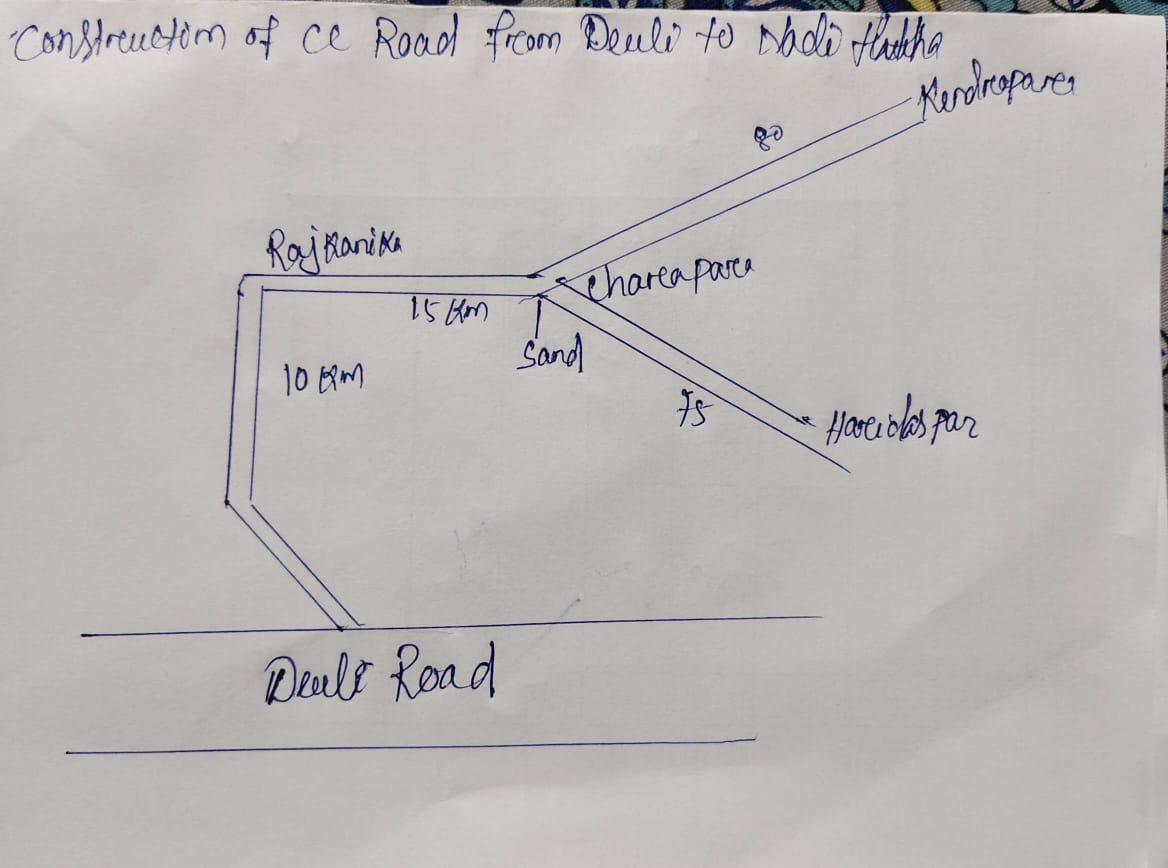 Construction of CC Road from Deuli to Nadi
Kendrapara
80
Rajkanika
Charapara
15 Km
Sand
10 Km
75
Haridaspar
Deuli Road